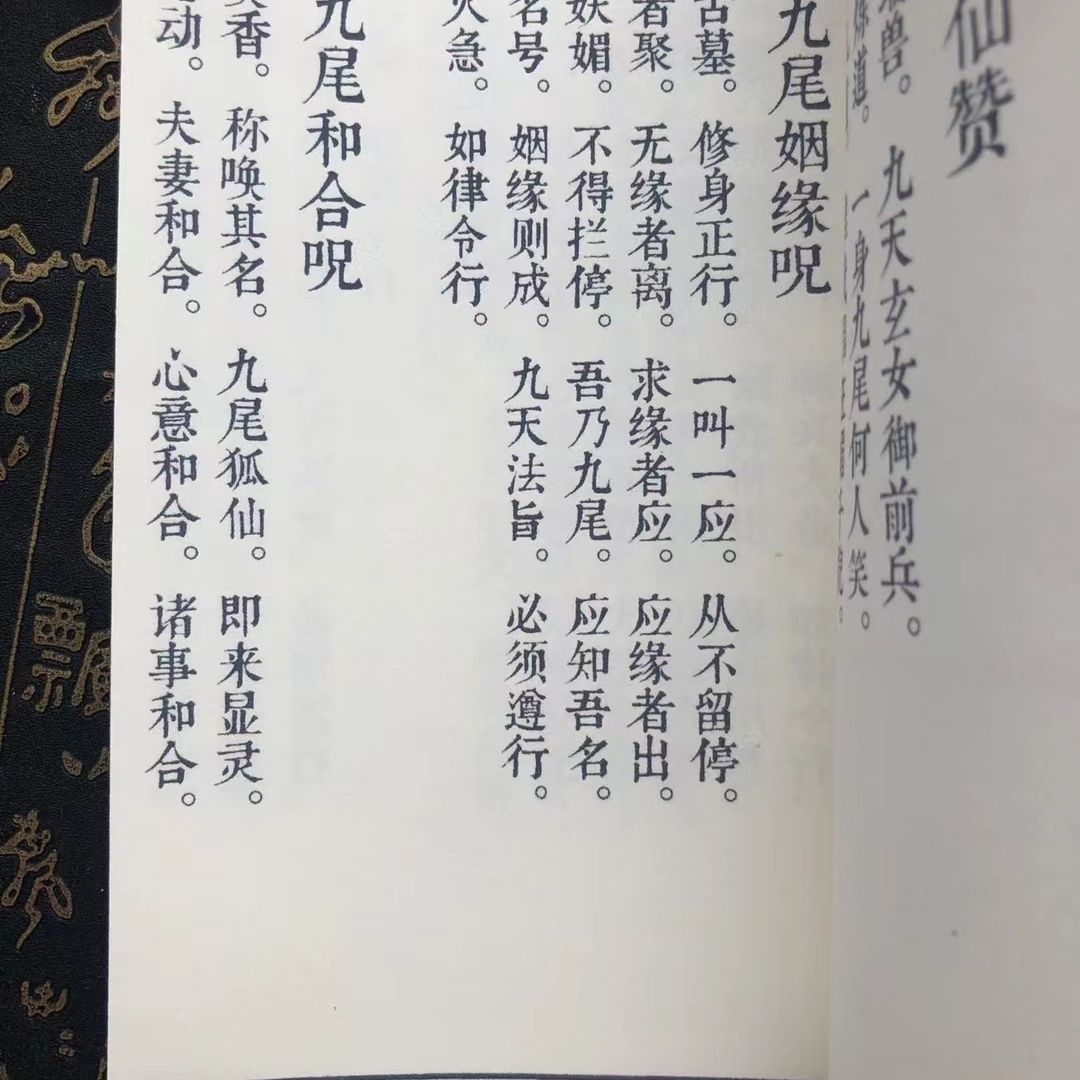 仙赞
兽。 九天玄女御前兵。
道。 一身九尾何人笑。
九尾姻缘呪
古墓。 修身正行。 一叫一应。 从不留停。
者聚。 无缘者离。 求缘者应。 应缘者出。
妖媚。 不得拦停。 吾乃九尾。 应知吾名。
名号。 姻缘则成。 九天法旨。 必须遵行。
火急。 如律令行。
九尾和合呪
香。 称唤其名。 九尾狐仙。 即来显灵。
动。 夫妻和合。 心意和合。 诸事和合。